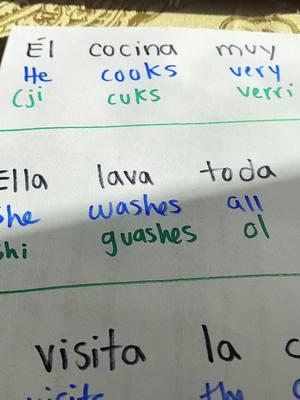 Él cocina muy
He cooks very
Cji cuks verri
Ella lava toda
she washes all
shi guashes ol
visita la
visits the